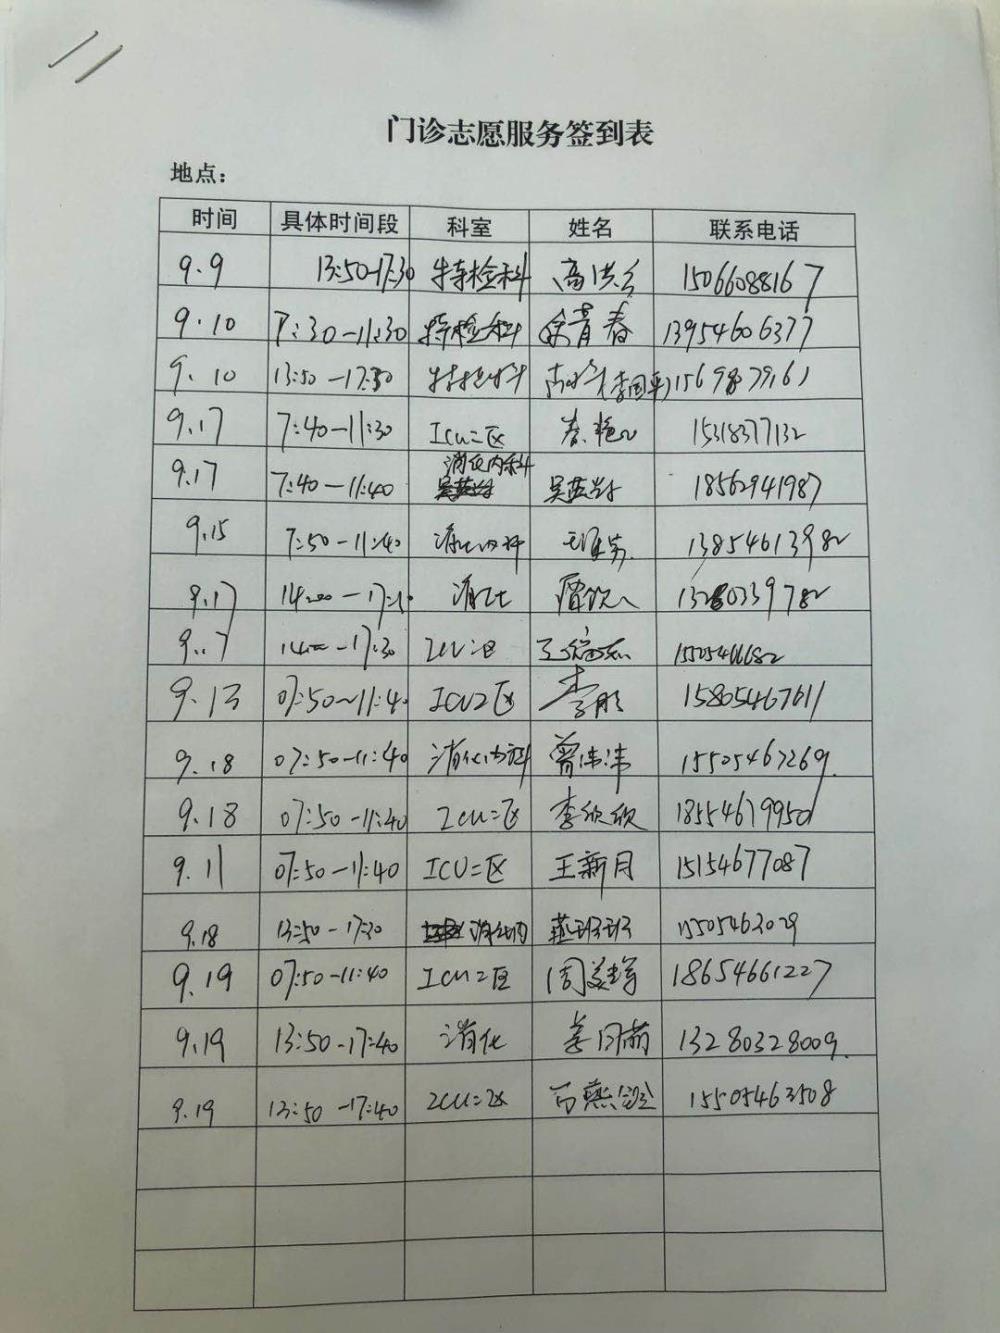 门诊志愿服务签到表
地点：
时间 具体时间段 科室 姓名 联系电话
9.9 13:50-17:30 特检科 高洪 15066088167
9.10 7:30-11:30 特检科 余青春 13954606377
9.10 13:50-17:30 特检科 (李国平) 15698779161
9.17 7:40-11:30 ICU二区 15318377132
9.17 7:40-11:40 消化内科 吴 18562941987
9.15 7:50-11:40 消化内科 13854613982
9.17 14:00-17:30 消化 13280339782
9.17 14:00-17:30 ICU二区 王 15505466682
9.13 07:50~11:40 ICU2区 李彤 15805467611
9.18 07:50-11:40 消化内科 曾沛沛 15505467269.
9.18 07:50-11:40 ICU二区 李欣欣 18554679950
9.11 07:50-11:40 ICU二区 王新月 15154677087
9.18 13:50-17:30 消化内 班班 15505463029
9.19 07:50-11:40 ICU二区 周美 18654661227
9.19 13:50-17:40 消化 姜月萌 13280328009.
9.19 13:50-17:40 ICU二区 燕 15505463508